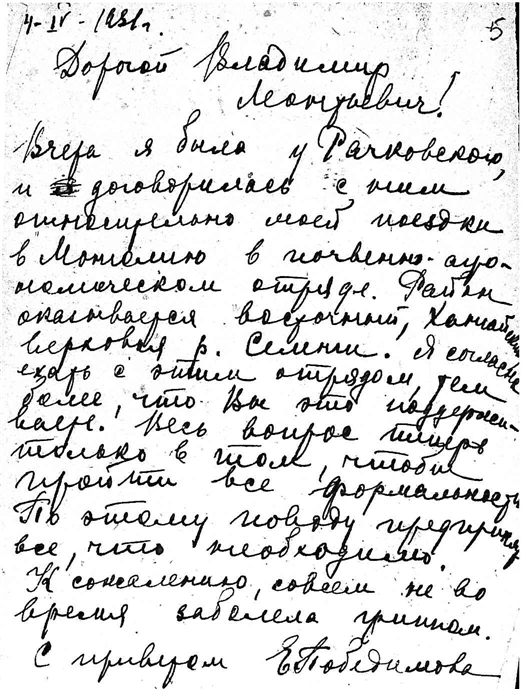 4-IV-1931г.
5
Дорогой Владимир
Леонтьевич!
Вчера я была у Рачковского,
и договорилась с ним
относительно моей поездки
в Монголию в почвенно-агро-
номическом отряде. Район
оказывается восточный, Хангайский
верховья р. Селенги. Я согласна
ехать с этим отрядом, тем
более, что Вы это поддержи-
ваете. Весь вопрос теперь
только в том, чтобы
пройти все формальности
По этому поводу предприму
все, что необходимо.
К сожалению, совсем не во
время заболела гриппом.
С приветом Е.Победимова